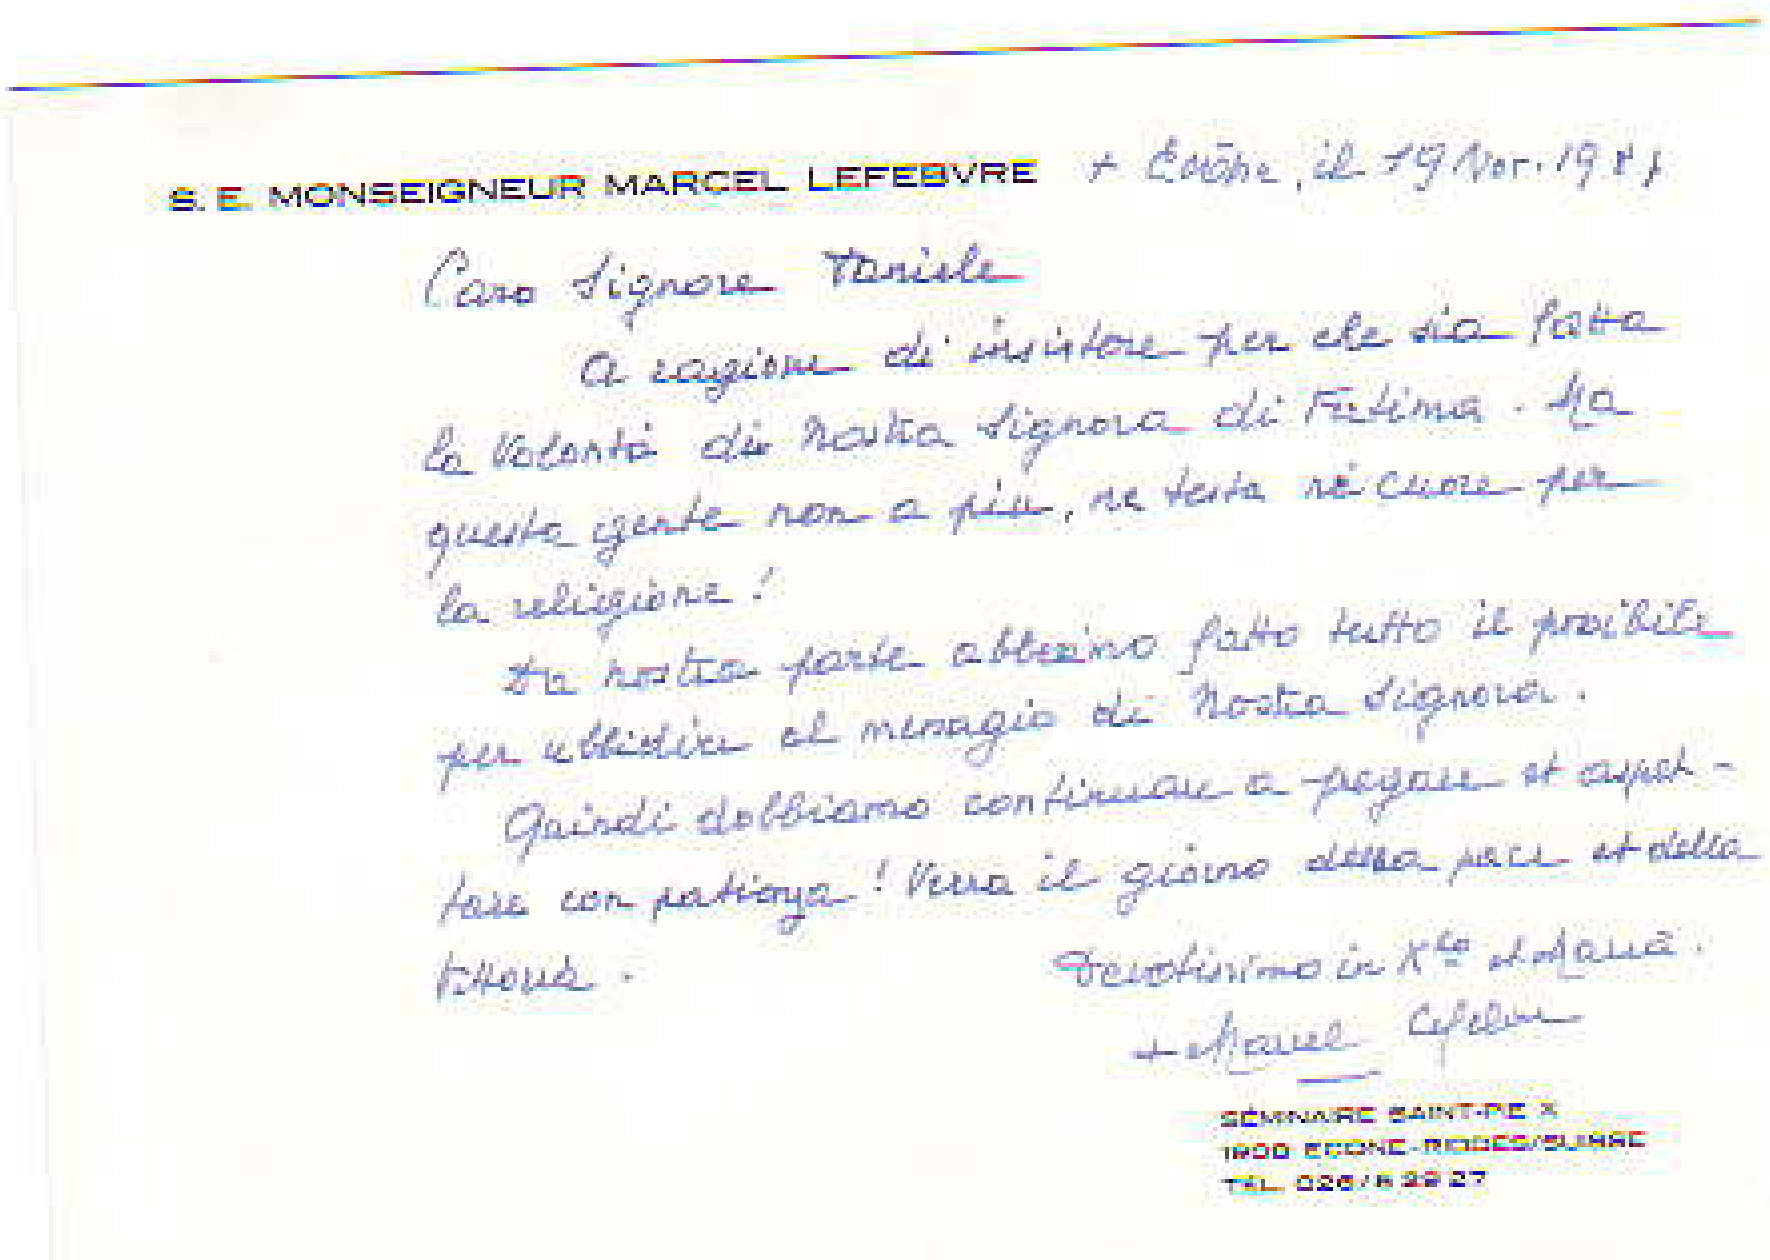 S. E. MONSEIGNEUR MARCEL LEFEBVRE + Ecône, il 19 Nov. 198
Caro Signore Daniele
A ragione di insistere per che sia fatta
la Volontà di Nostra Signora di Fatima. Ma
questa gente non a piu, ne testa nè cuore per
la religione!
Da nostra parte abbiamo fatto tutto il possibile
per ubbidire al messagio di Nostra Signora.
Quindi dobbiamo continuare a pregare et aspet-
tare con patienza! Verra il giorno della pace et della
Devotissimo in Xto et Maria.
+ Marcel Lefebvre
SÉMINAIRE SAINT-PIE X
1908 ECÔNE-RIDDES/SUISSE
TÉL. 026/6 29 27